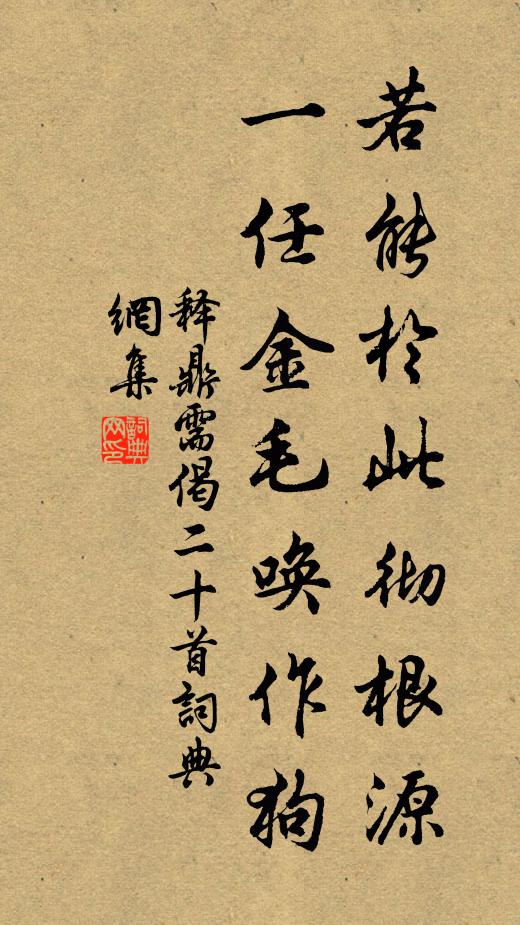 若能於此彻根源
一任金毛唤作狗
释鼎需偈二十首詞典
網集
詞典
网印